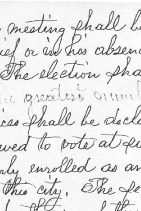 meeting shall be
or in his absence
The election sha
the greatest numb
shall be decla
wed to vote at su
nly enrolled as an
this city. The se